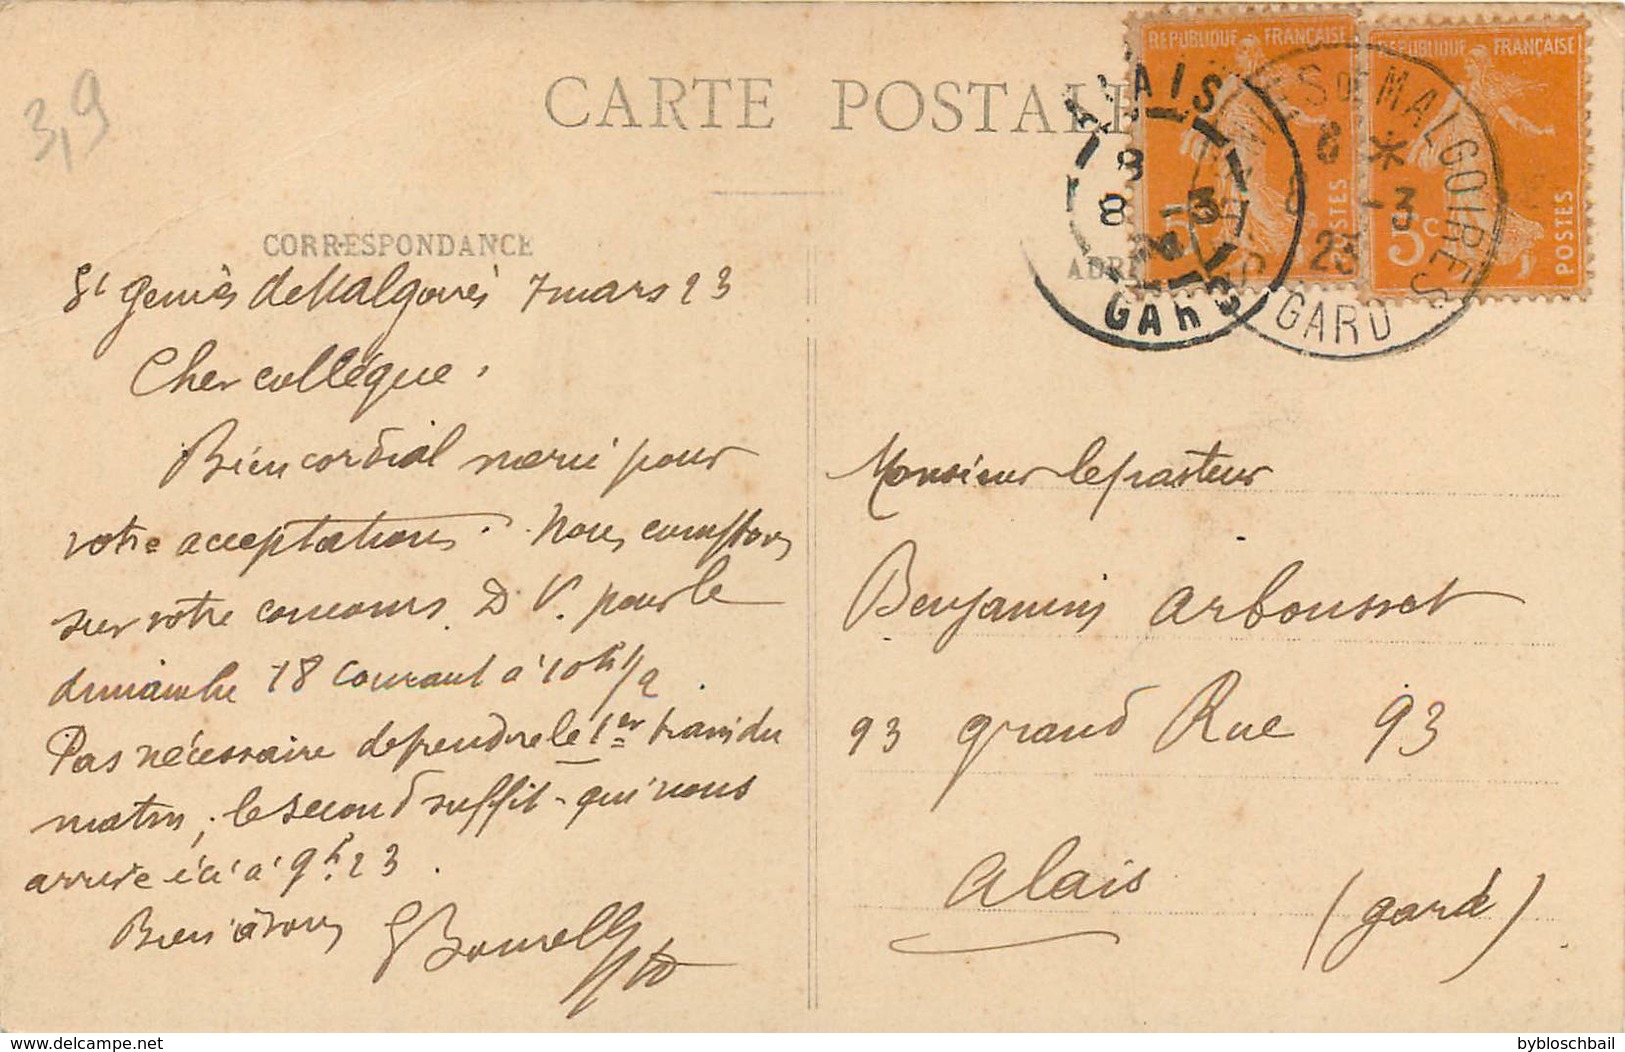 3,9
CARTE POSTALE
CORRESPONDANCE
St Geniès de Malgoirès 7 mars 23
Cher collègue,
Bien cordial merci pour
votre acceptation. Nous comptons
sur votre concours D. V. pour le
dimanche 18 courant à 10h 1/2.
Pas nécessaire de prendre le 1er train du
matin, le second suffit - qui nous
arrive ici à 9h.23.
Bien à vous
REPUBLIQUE FRANÇAISE
POSTES
REPUBLIQUE FRANÇAISE
5c
POSTES
ALAIS
8
8 -3
23
GARD
GENIES DE MALGOIRES
8 *
-3
23
GARD
Monsieur le pasteur
Benjamin Arbousset
93 grand Rue 93
Alais
(Gard)
bybloschbail.delcampe.net
bybloschbail